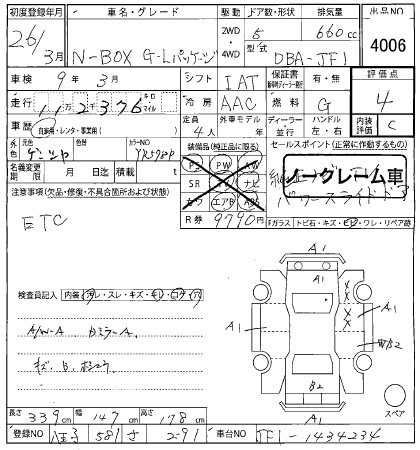 初度登録年月 車名・グレード 駆動 ドア数・形状 排気量 出品NO
26/3月 N-BOX G・Lパッケージ 2WD・4WD 5 660cc 4006
型式 DBA-JF1
車検 9年3月 シフト IAT 保証書 有・無 評価点 4
走行 11万2千376 キロ マイル 冷房 AAC 燃料 G 内装評価 C
車歴 自家用・レンタ・事業用 定員 4人 外車モデル 年 ディーラー 並行 ハンドル 左・右
外色 元色 色替 カラーNO YR598P
装備品(純正品に限る) セールスポイント(正常に作動するもの)
名義変更期限 月 日 積載量 t
PS PW AW
SR ナビ
カワ エアB ABS
ノークレーム車
パワースライドドア
注意事項(欠品・修復・不具合箇所および状態)
R券 9790円 Fガラス トビ石・キズ・ヒビ・ワレ・リペア跡
ETC
A1
A1
検査員記入 内装
A/W-A カミラーA
A1
A1
WB2
B2
A1
スペア
長さ 339cm 幅 147cm 高さ 178cm
登録NO 八王子 581 さ 291 車台NO JF1-1434234